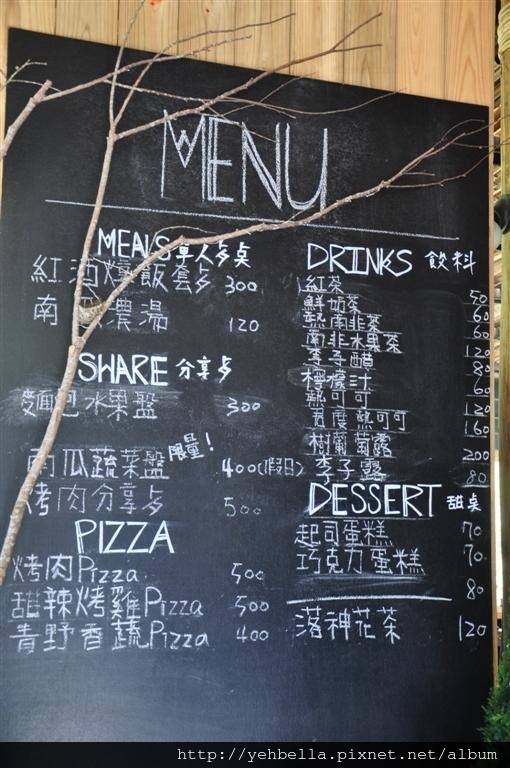 MENU
MEALS 單人多桌
紅酒燉飯套多 300
南 濃湯 120
SHARE 分享多
麵包水果盤 300
限量!
南瓜蔬菜盤 400(假日)
烤肉分享多 500
PIZZA
烤肉Pizza 500
甜辣烤雞Pizza 500
青野香蔬Pizza 400
DRINKS 飲料
紅茶 50
鮮奶茶 60
熱南非茶 60
南非水果茶 120
李子醋 80
檸檬汁 60
熱可可 120
君度熱可可 160
樹葡萄露 200
李子露 80
DESSERT 甜桌
起司蛋糕 70
巧克力蛋糕 70
80
洛神花茶 120
http://yehbella.pixnet.net/album